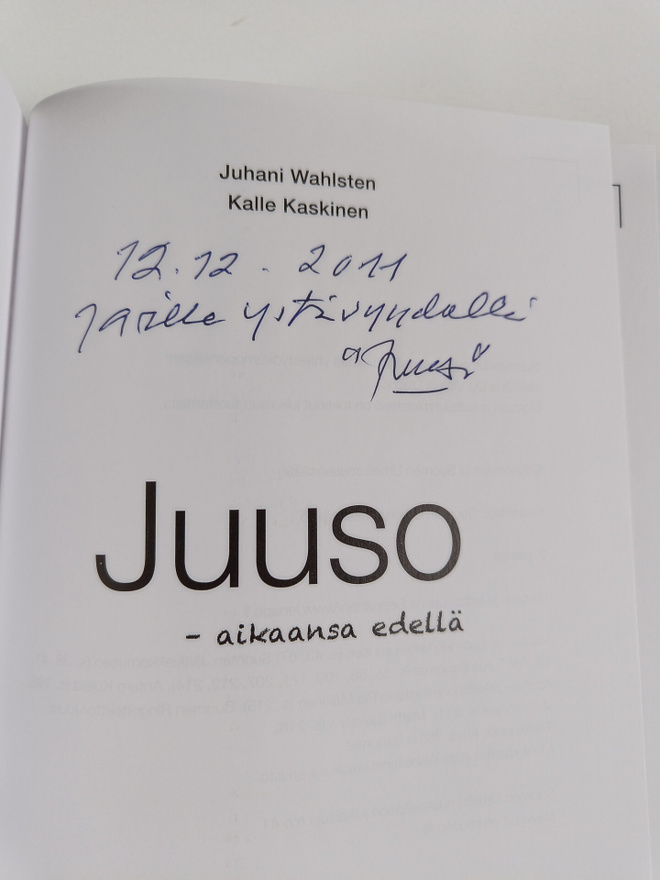 Juhani Wahlsten
Kalle Kaskinen
12.12.2011
Jarille ystävyydellä
"Juuso"
Juuso
- aikaansa edellä